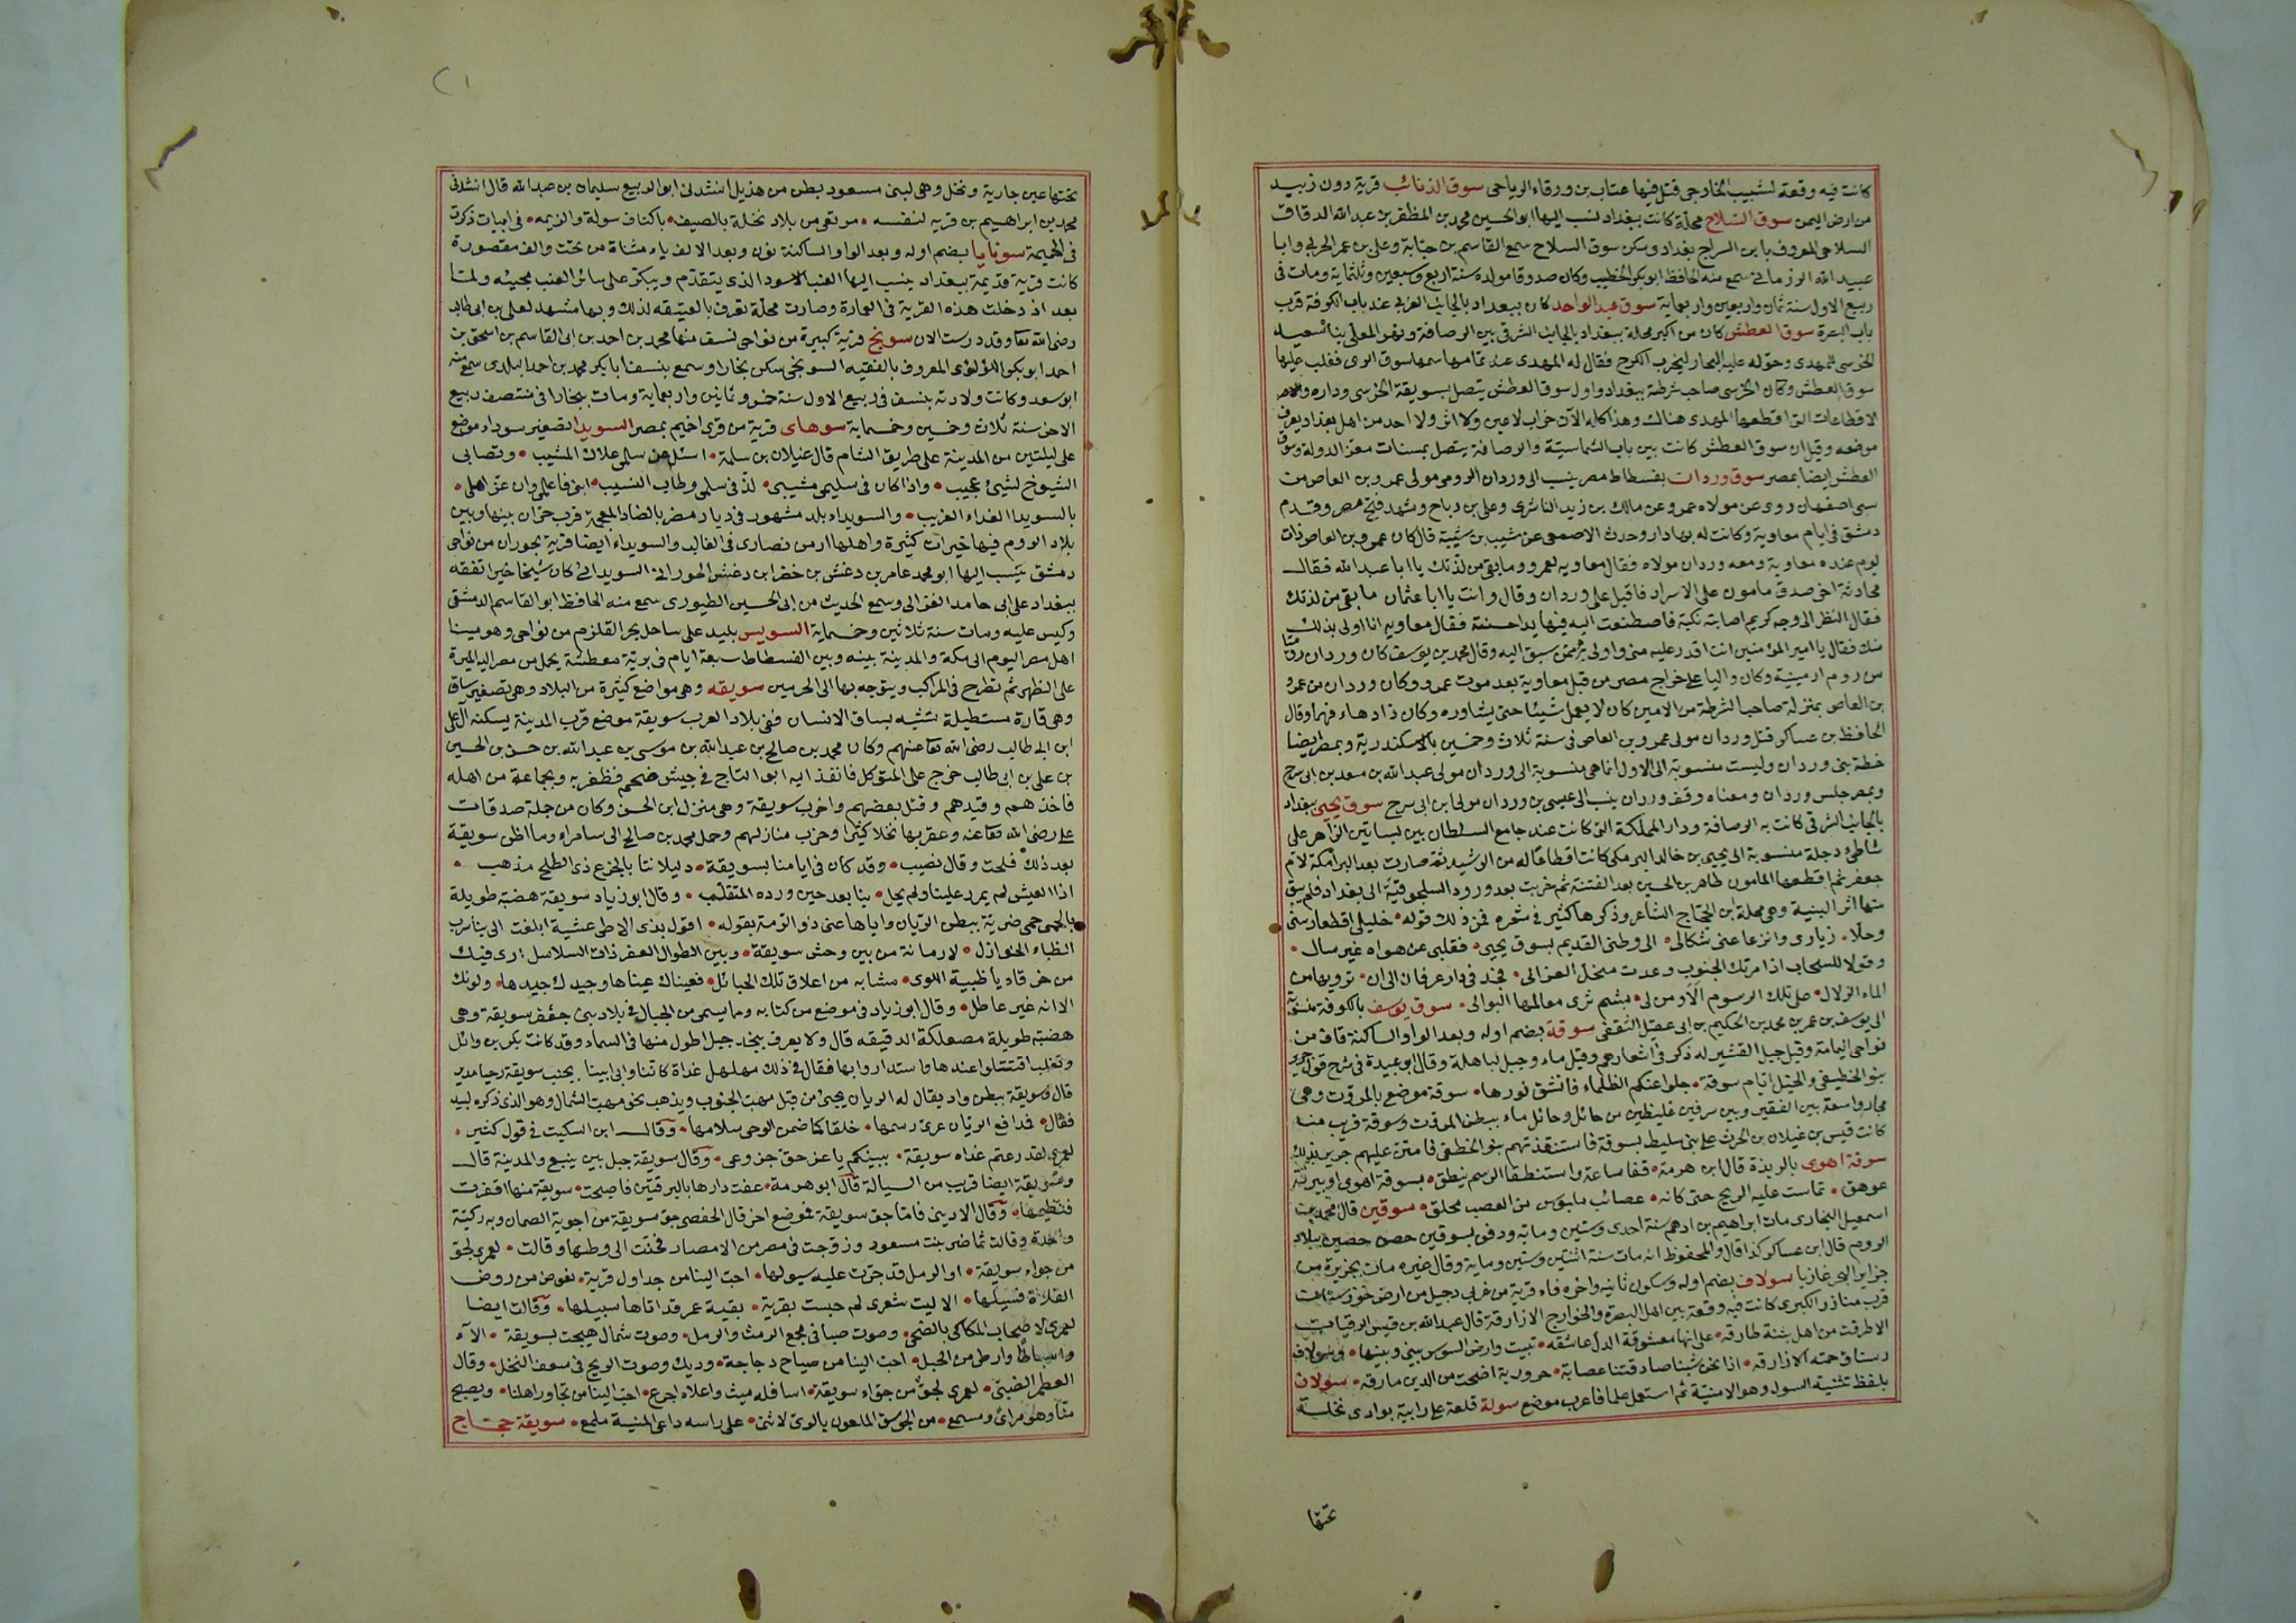 كانت فيه وقعة لشبيب الخارجى قتل فيها عتاب بن ورقاء الرياحى سوق الذنائب قرية دون زبيد
من ارض اليمن سوق السلاح محلة كانت ببغداد نسب اليها ابو الحسين محمد بن المظفر بن عبد الله الدقاق
السلاحى المعروف بابن السراج بغدادى سكن سوق السلاح سمع القاسم بن حبابة وعلى بن عمر الحربى وابا
عبيد الله المرزبانى سمع منه الحافظ ابو بكر الخطيب وكان صدوقا مولده سنة اربع وسبعين وثلثماية ومات فى
ربيع الاول سنة ثمان واربعين واربعماية سوق عبد الواحد كان ببغداد بالجانب الغربى عند باب الكوفة قرب
باب البصرة سوق العطش كان من اكبر محلة ببغداد بالجانب الشرقى بين الرصافة ونهر المعلى بناه سعيد
الخرسى للمهدى وحوّل اليه التجار ليخرب الكرخ فقال له المهدى عند تمامها سمها سوق الرى فغلب عليها
سوق العطش وكان الخرسى صاحب شرطة ببغداد واول سوق العطش يتصل بسويقة الخرسى وداره
الاقطاعات التى اقطعها المهدى هناك وهذا كله الآن خراب لا عين ولا اثر ولا احد من اهل بغداد يعرف
موضعه وقيل ان سوق العطش كانت بين باب الشماسية والرصافة يتصل بمسنات معز الدولة وسوق
العطش ايضا بمصر سوق وردان بفسطاط مصر ينسب الى وردان الرومى مولى عمرو بن العاص من
سبى اصفهان روى عن مولاه عمرو وعن مالك بن زيد الناشرى وعلى بن رباح وشهد فتح مصر وقدم
دمشق فى ايام معاوية وكانت له بها دار وحدث الاصمعى عن شبيب بن شيبة قال كان عمرو بن العاص ذات
يوم عنده معاوية ومعه وردان مولاه فقال معاويه لعمرو وما بقى من لذتك يا ابا عبد الله فقال
محادثة اخى صدق مامون على الاسرار فاقبل على وردان وقال وانت يا ابا عثمان ما بقى من لذتك
فقال النظر الى وجه كريم اصابته نكبة فاصطنعت اليه فيها يدا حسنة فقال معاويه انا اولى بذلك
منك فقال يا امير المؤمنين انت اقدر عليه منى واولى به ممن سبق اليه وقال محمد بن يوسف كان وردان روميا
من روم ارمينية وكان واليا على خراج مصر من قبل معاوية بعد موت عمرو وكان وردان من عمرو
بن العاص بمنزلة صاحب الشرطة من الامير كان لا يعمل شيئا حتى يشاوره وكان ذا دهاء فهما وقال
الحافظ بن عساكر قتل وردان مولى عمرو بن العاص فى سنة ثلاث وخمسين بالاسكندرية وبمصر ايضا
خطة بنى وردان وليست منسوبة الى الاول انما هى منسوبة الى وردان مولى عبد الله بن سعد بن ابى سرح
وبمصر جلس وردان ومعناه وقف وردان ينسب الى عيسى بن وردان مولى ابن ابى سرح سوق يحيى ببغداد
بالجانب الشرقى كانت به الرصافة ودار المملكة التى كانت عند جامع السلطان بين بساتين الزاهر على
شاطئ دجلة منسوبة الى يحيى بن خالد البرمكى كانت اقطاعا له من الرشيد ثم صارت بعد البرامكة لام
جعفر ثم اقطعها المامون طاهر بن الحسين بعد الفتنة ثم خربت بعد ورود السلجوقية الى بغداد فلم يبق
منها اثر البنية وهى محلة ابن الحجاج الشاعر وذكرها كثير فى شعره فمن ذلك قوله خليلى اقطعا رسنى
وحلا زيارى وانزعا عنى شكالى الى وطنى القديم بسوق يحيى فقلبى عن هواه غير سال
وقولا للسحاب اذا مرتك الجنوب وعدت منحل العزالى فجد فى دار عرفان الى ان ترويها من
الماء الزلال على تلك الرسوم الا ومن لى بشم ثرى معالمها البوالى سوق يوسف بالكوفة منسوبة
الى يوسف بن عمر بن محمد بن الحكيم بن ابى عقيل الثقفى سوقة بضم اوله وبعد الواو الساكنة قاف من
نواحى اليمامة وقيل جبل القشير له ذكر فى اشعارهم وقيل ماء وجبل لباهلة وقال ابو عبيدة فى شرح قول جرير
بنو الخطيفى والخيل ايام سوقة جلوا عنكم الظلماء فانشق نورها سوقة موضع بالمروت وهى
مجار واسعة بين القفين وبين سرفين غليظين من حائل وحائل ماء ببطن المروت وسوقة قريب منه
كانت قيس بن غيلان بن الحرث على بنى سليط بسوقة فاستنقذتهم بنو الخطفى فامتن عليهم جرير بذلك
سوقة اهوى بالربذة قال ابن هرمة قفا ساعة واستنطقا الرسم ينطق بسوقة اهوى
عوهق تماست عليه الريح حتى كانه عصائب من العصب مخلق سوقين قال محمد بن
اسمعيل البخارى مات ابراهيم بن ادهم سنة احدى وستين وماية ودفن بسوقين حصن حصين ببلاد
الروم قال ابن عساكر كذا قال والمحفوظ انه مات سنة اثنتين وستين وماية وقال غيره مات بجزيرة من
جزاير البحر غازيا سولاف بضم اوله وسكون ثانيه واخره فاء قرية من غربى دجيل من ارض خوزستان
قرب مناذر الكبرى كانت فيه وقعة بين اهل البصرة والخوارج الازارقة قال عبيد الله بن قيس الرقيات
الا طرقت من اهل بثنة طارقه على انها معشوقة الدل عاشقه تبيت وارض السوس بينى وبينها وسولاف
رستاق حمته الازارقه اذا نحن شئنا صادفتنا عصابة حرورية اضحت من الدين مارقه سولان
بلفظ تثنية السول وهو الامنية ثم استعمل علما فاعرب موضع سولة قلعة على رابية بوادى نخلة
تحتها
تحتها عين جارية ونخل وهى لبنى مسعود بطن من هذيل انشدنى ابو الربيع سليمان بن عبد الله قال انشدنى
محمد بن ابراهيم بن قريه لنفسه مرتعى من بلاد نخلة بالصيف باكناف سولة والزيمه فى ابيات ذكرت
فى الحميمة سونايا بضم اوله وبعد الواو الساكنة نون وبعد الالف ياء مثناة من تحت والف مقصورة
كانت قرية قديمة ببغداد ينسب اليها العنب الاسود الذى يتقدم ويبكر على سائر العنب مجيئه ولما
بعد اذ دخلت هذه القرية فى العمارة وصارت محلة تعرف بالعتيقه لذلك وبها مشهد لعلى بن ابى طالب
رضى الله تعا وقد درست الان سونج قرية كبيرة من نواحى نسف منها محمد بن احمد بن ابى القاسم بن اسحق بن
احمد ابو بكر اللؤلؤى المعروف بالفقيه السونجى سكن بخارا وسمع بنسف ابا بكر محمد بن احمد البلدى سمع منه
ابو سعد وكانت ولادته بنسف فى ربيع الاول سنة خمس وثمانين واربعماية ومات ببخارا فى منتصف ربيع
الاخر سنة ثلاث وخمسين وخمسماية سوهاى قرية من قرى اخميم بمصر السويدا تصغير سوداء موضع
على ليلتين من المدينة على طريق الشام قال غيلان بن سلمة اسئل عن سلمى علاك المشيب وتصابى
الشيوخ لشئ عجيب واذا كان فى سليمى مشيبى لذ فى سلمى وطاب النسيب انى فاعلمى وان عز اهلى
بالسويدا الغداة الغريب والسويداء بلد مشهور فى ديار مضر بالضاد المعجمة قرب حران بينها وبين
بلاد الروم فيها خيرات كثيرة واهلها ارمن نصارى فى الغالب والسويداء ايضا قرية بحوران من نواحى
دمشق ينسب اليها ابو محمد عامر بن دغش بن خضر ابن دغش الحورانى السويدائى كان شيخا خيرا تفقه
ببغداد على ابى حامد الغزالى وسمع الحديث من ابى الحسين الطيورى سمع منه الحافظ ابو القاسم الدمشقى
وكيس عليه ومات سنة ثلاثين وخمسماية السويس بليد على ساحل بحر القلزم من نواحى وهو مينا
اهل مصر اليوم الى مكة والمدينة بينه وبين الفسطاط سبعة ايام فى برية معطشة يحمل من مصر اليه الميرة
على الظهر ثم تطرح فى المراكب ويتوجه بها الى الحرمين سويقه وهى مواضع كثيرة من البلاد وهى تصغير ساق
وهى قارة مستطيلة تشبه بساق الانسان ففى بلاد العرب سويقة موضع قرب المدينة يسكنه آل على
ابن ابى طالب رضى الله تعا عنهم وكان محمد بن صالح بن عبد الله بن موسى بن عبد الله بن حسن بن الحسين
بن على بن ابى طالب خرج على المتوكل فانفذ اليه ابو الساج فى جيش ضخم فظفر به وبجماعة من اهله
فاخذهم وقيدهم وقتل بعضهم واخرب سويقة وهى منزل ابن الحسن وكان من جملة صدقات
على رضى الله تعا عنه وعقر بها نخلا كثيرا وخرب منازلهم وحمل محمد بن صالح الى سامراء وما اظن سويقة
بعد ذلك فلحت وقال نصيب وقد كان فى ايامنا بسويقة وليلاتنا بالجزع ذى الطلح مذهب
اذا العيش لم يمرر علينا ولم يحل بنا بعد حين ورده المتقلب وقال ابو زياد سويقة هضبة طويلة
بالحمى حمى ضرية ببطن الريان واياها عنى ذو الرمة بقوله اقول بذى الارطى عشية ابلغت الى نبأ سرب
الظباء الخواذل لادمانة من بين وحش سويقة وبين الطوال العفر ذات السلاسل ارى فيك
من خرقاء يا ظبية اللوى مشابه من اعلاق تلك الحبائل فعيناك عيناها وجيدك جيدها ولونك
الا انه غير عاطل وقال ابو زياد فى موضع من كتابه وما يسمى من الجبال فى بلاد بنى جعفر سويقة وهى
هضبة طويلة مصعلكة الدقيقه قال ولا يعرف بنجد جبل اطول منها فى السماء وقد كانت بكر بن وائل
وتغلب اقتتلوا عندها واستداروا بها فقال فى ذلك مهلهل غداة كاننا وابى ابينا بجنب سويقة رحيا مدير
قال وسويقة ببطن واد يقال له الريان يجئ من قبل مهب الجنوب ويذهب نحو مهب الشمال وهو الذى ذكره لبيد
فقال فمدافع الريان عرى رسمها خلقا كما ضمن الوحى سلامها وقال ابن السكيت فى قول كثير
لعمرى لقد رعتم غداة سويقة ببينكم يا عز حق جزوعى وقال سويقة جبل بين ينبع والمدينة قال
وسويقة ايضا قريب من السيالة قال ابو هرمة عفت دارها بالبرقتين فاصبحت سويقة منها اقفرت
فنظيمها وقال الاديبى فاما جو سويقة فموضع اخر قال الحفصى جو سويقة من اجوية الصمان وبه ركية
واحدة وقالت تماضر بنت مسعود وزوجت فى مصر من الامصار فحنت الى وطنها وقالت لعمرى لجو
من جواء سويقة او الرمل قد جرت عليه سيولها احب الينا من جداول قرية تعوض من روض
الفلاة فسيلها الا ليت شعرى لم حبست بقرية بقية عمر قد اتاها سبيلها وقالت ايضا
لعمرى لاصحاب المكاكى بالضحى وصوت صبا فى مجمع الرمث والرمل وصوت شمال هيجت بسويقة الآء
واسباطا وارطى من الحبل احب الينا من صياح دجاجة وديك وصوت الريح فى سعف النخل وقال
الغطمش الضبى لعمرى لجو من جواء سويقة اسافله ميث واعلاه اجرع احب الينا من تجاور اهلنا ويصبح
منا وهو مرائ ومسمع من الجوسق الملعون بالرى لاثنى على راسه داعى المنية ملمع سويقة حجاج